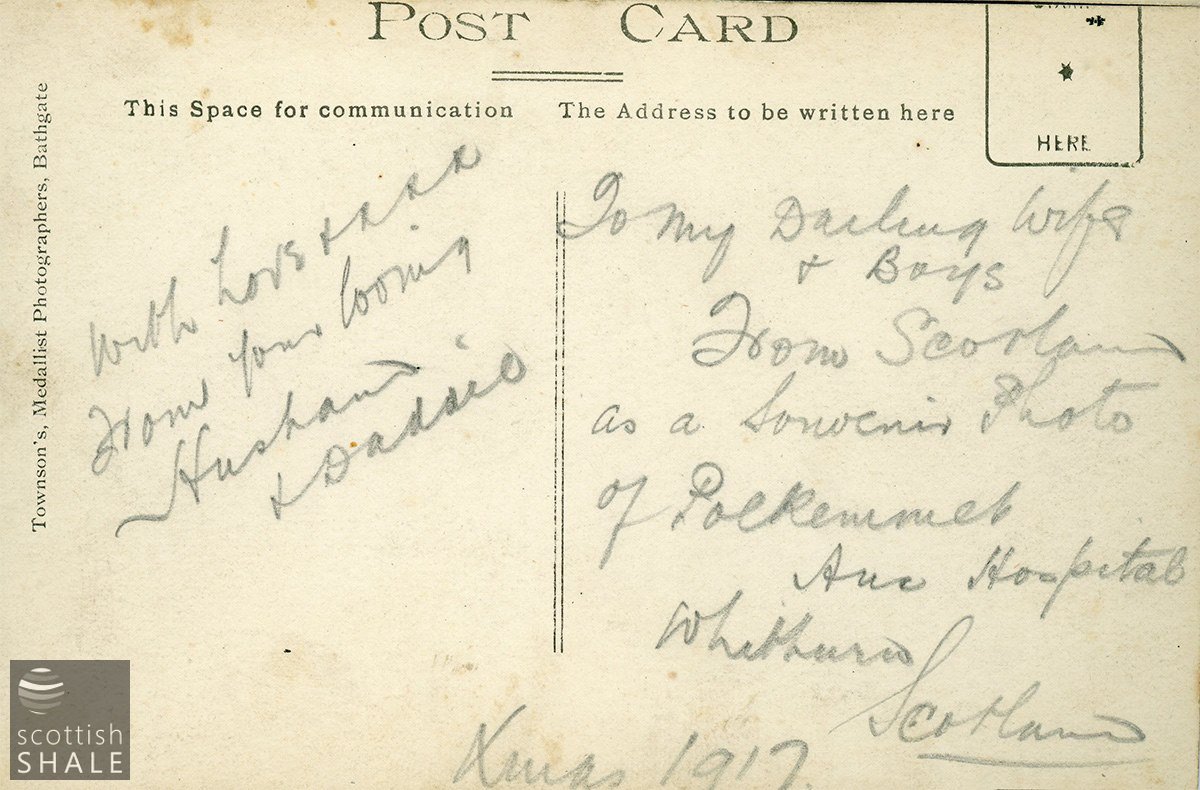 POST CARD
This Space for communication
The Address to be written here
HERE
Townson's, Medallist Photographers, Bathgate
With Love xxxxx
From your loving
Husband
& Daddie
To My Darling Wife
& Boys
From Scotland
as a Souvenir Photo
of Polkemmet
Aux Hospital
Whitburn
Scotland
Xmas 1917.
scottish
SHALE